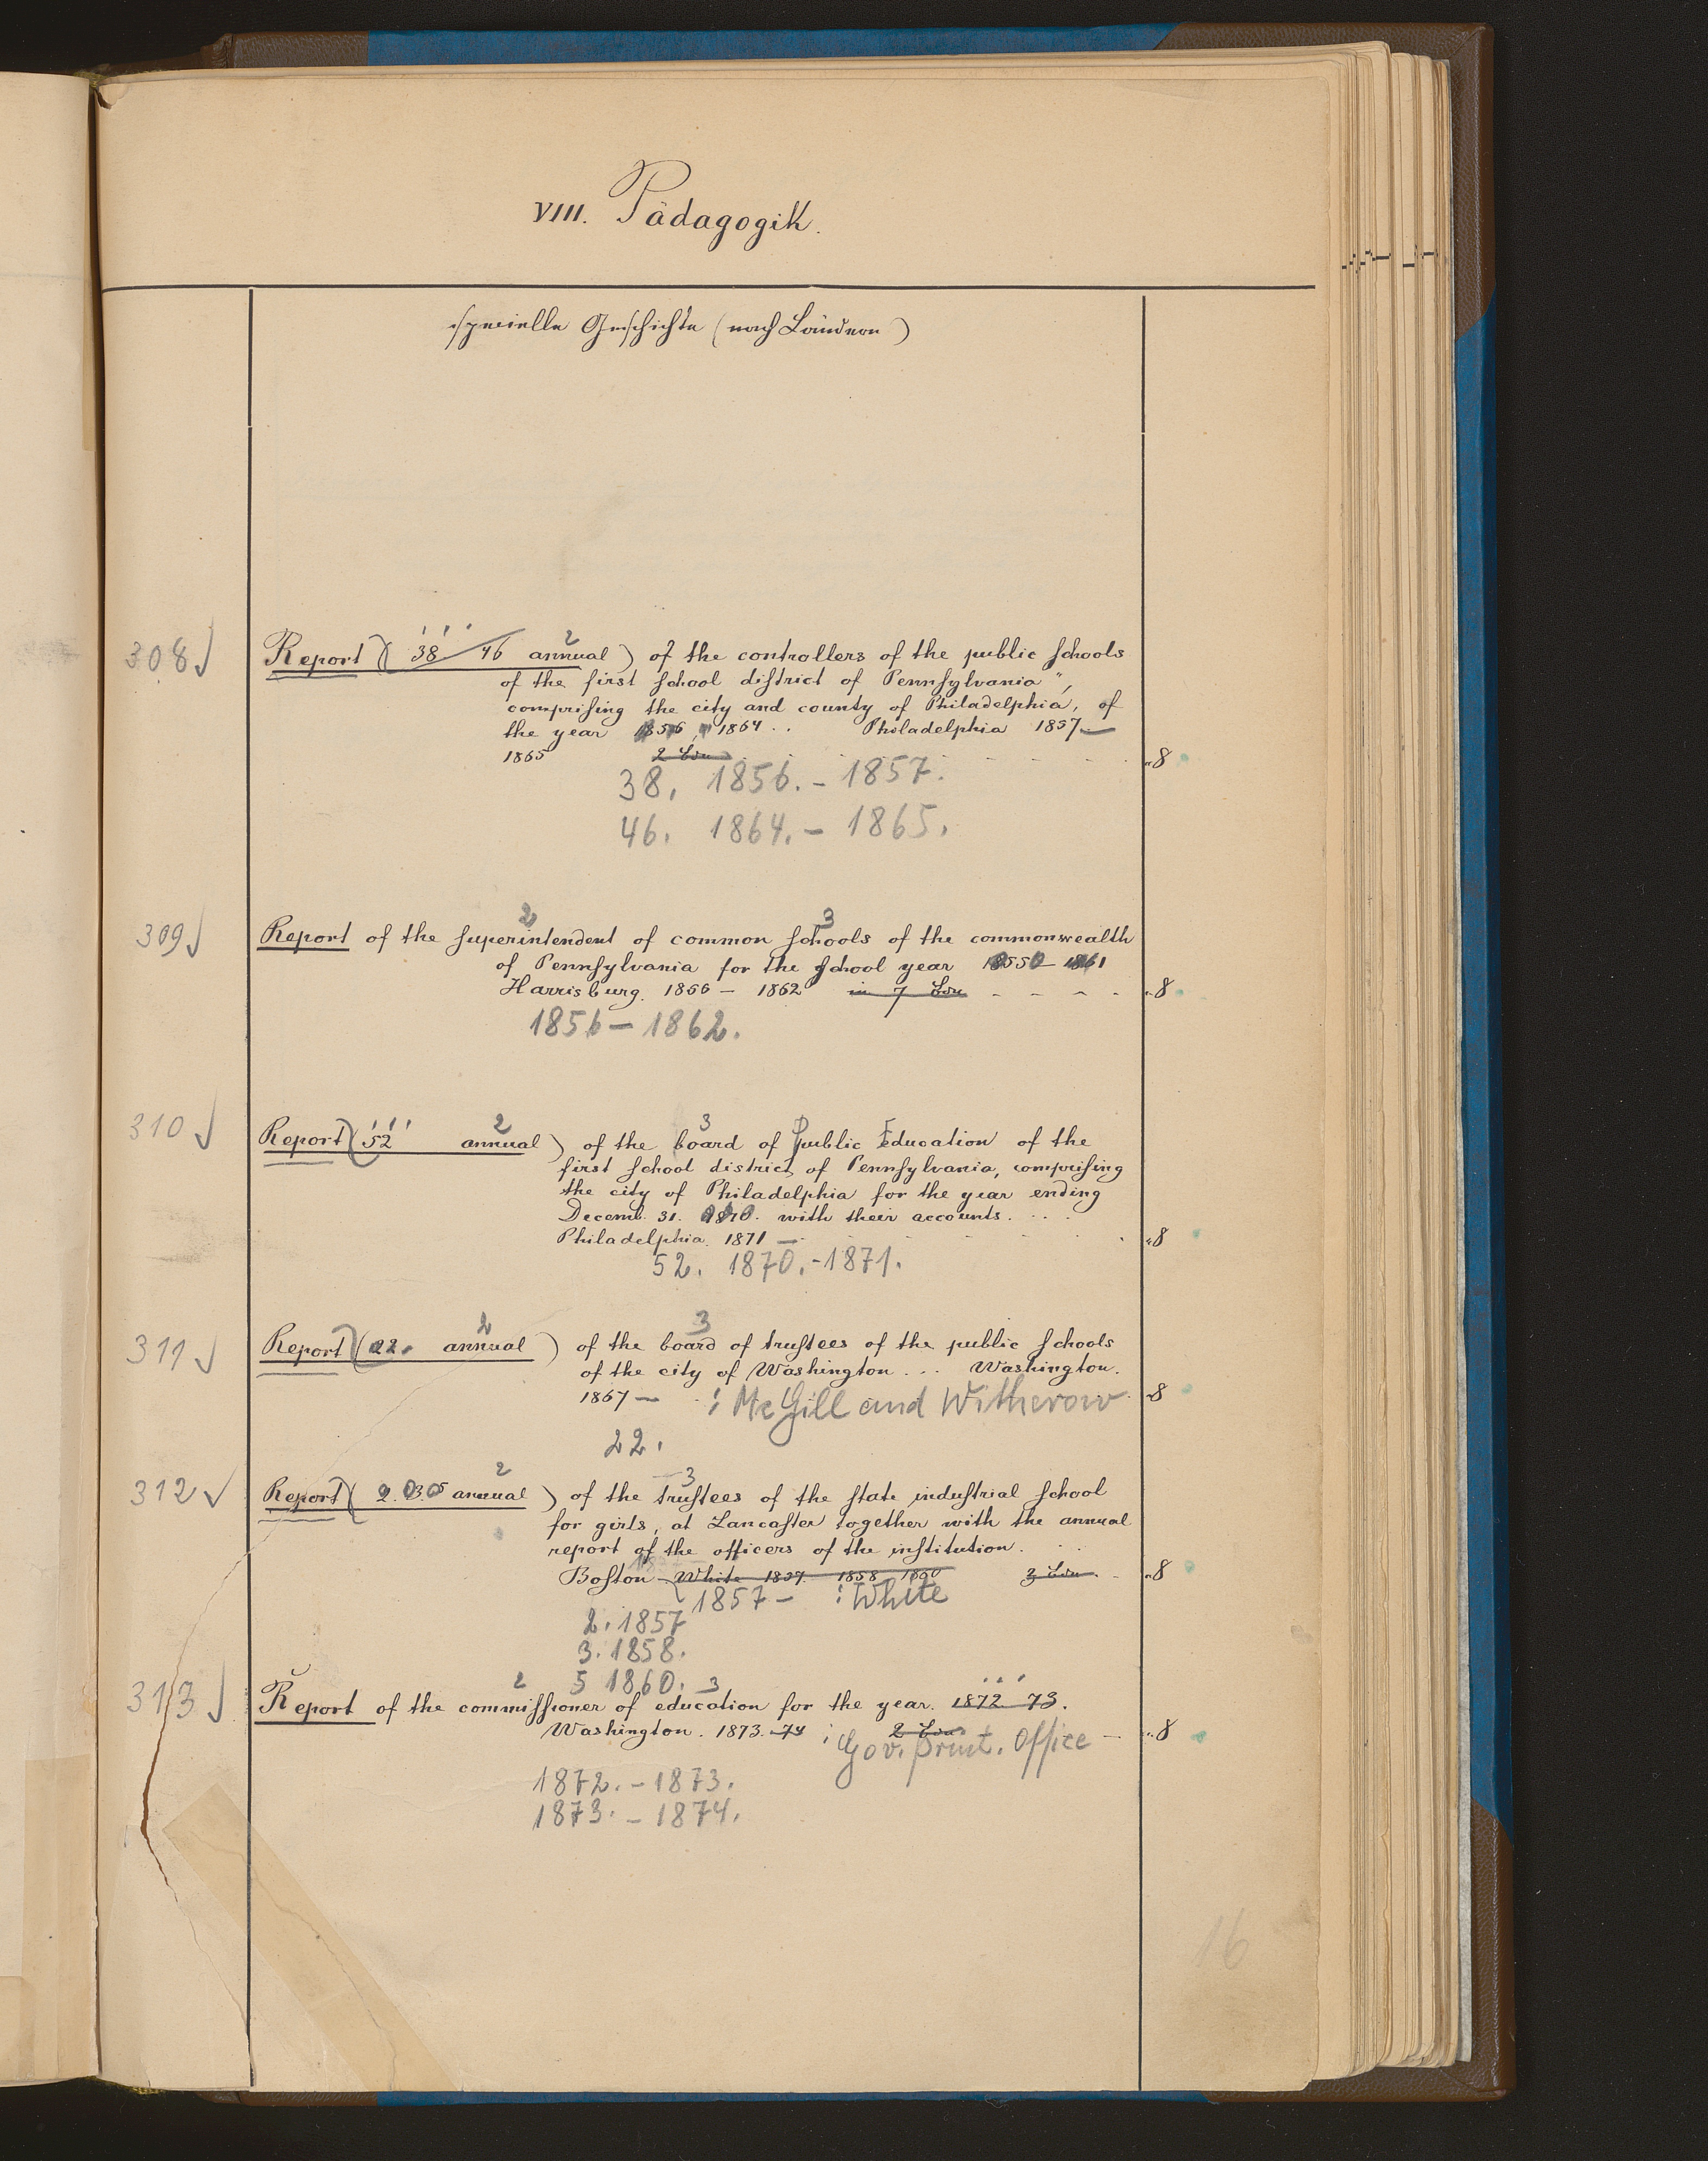 VIII. Pädagogik.
specielle Geschichte (nach Ländern)
308 Report (38 46 annual) of the controllers of the public schools
of the first school district of Pennsylvania",
comprising the city and county of Philadelphia, of
the year 1856, 1864 .. Philadelphia 1857-
1865 2 Bde "8
38. 1856. - 1857.
46. 1864. - 1865.
309 Report of the superintendent of common schools of the commonwealth
of Pennsylvania for the school year 1855 - 1861
Harrisburg. 1856 - 1862 in 7 Bdn "8
1856 - 1862.
310 Report (52 annual) of the board of Public Education of the
first school district of Pennsylvania, comprising
the city of Philadelphia for the year ending
Decemb. 31. 1870. with their accounts. . . .
Philadelphia. 1871 - "8
52. 1870. - 1871.
311 Report (22. annual) of the board of trustees of the public schools
of the city of Washington ... Washington.
1867 - : McGill and Witherow "8
22.
312 Report (2. 3. 5 annual) of the trustees of the state industrial school
for girls, at Lancaster together with the annual
report of the officers of the institution. . .
Boston White 1857. 1858 1860 3 Bde. "8
1857 - : White
2. 1857
3. 1858.
5 1860.
313 Report of the commissioner of education for the year. 1872 73.
Washington. 1873. 74 2 Bde "8
: Gov. print. Office
1872. - 1873.
1873. - 1874.
16